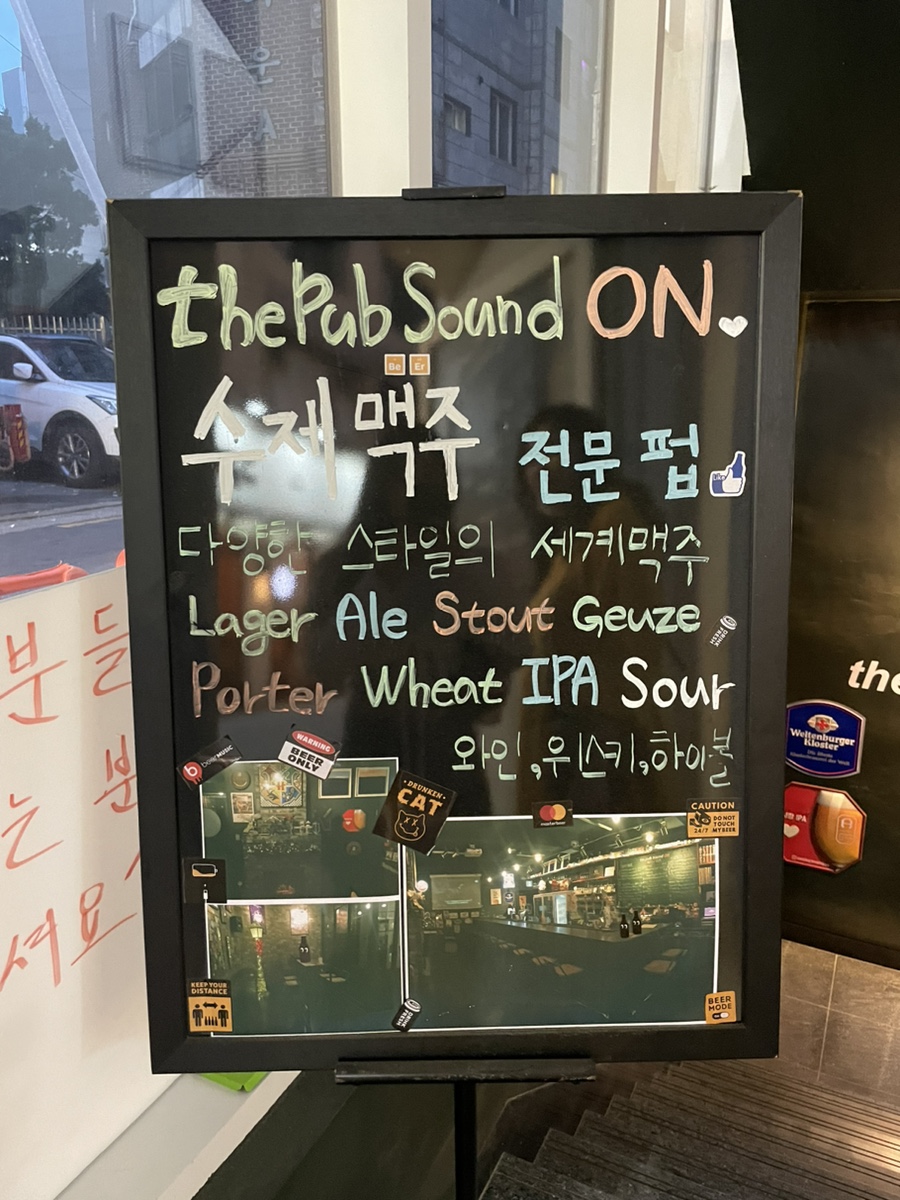 thePub Sound ON
Be Er
수제 맥주 전문 펍
Like
다양한 스타일의 세계맥주
Lager Ale Stout Geuze
DRINK FRESH
Porter Wheat IPA Sour
와인, 위스키, 하이볼
WARNING
BEER ONLY
DRUNKEN CAT
mastercard
CAUTION
DO NOT TOUCH MY BEER
24/7
KEEP YOUR DISTANCE
DRINK FRESH
BEER MODE
분 들
는 분
셔요
the
Weltenburger Kloster
IPA